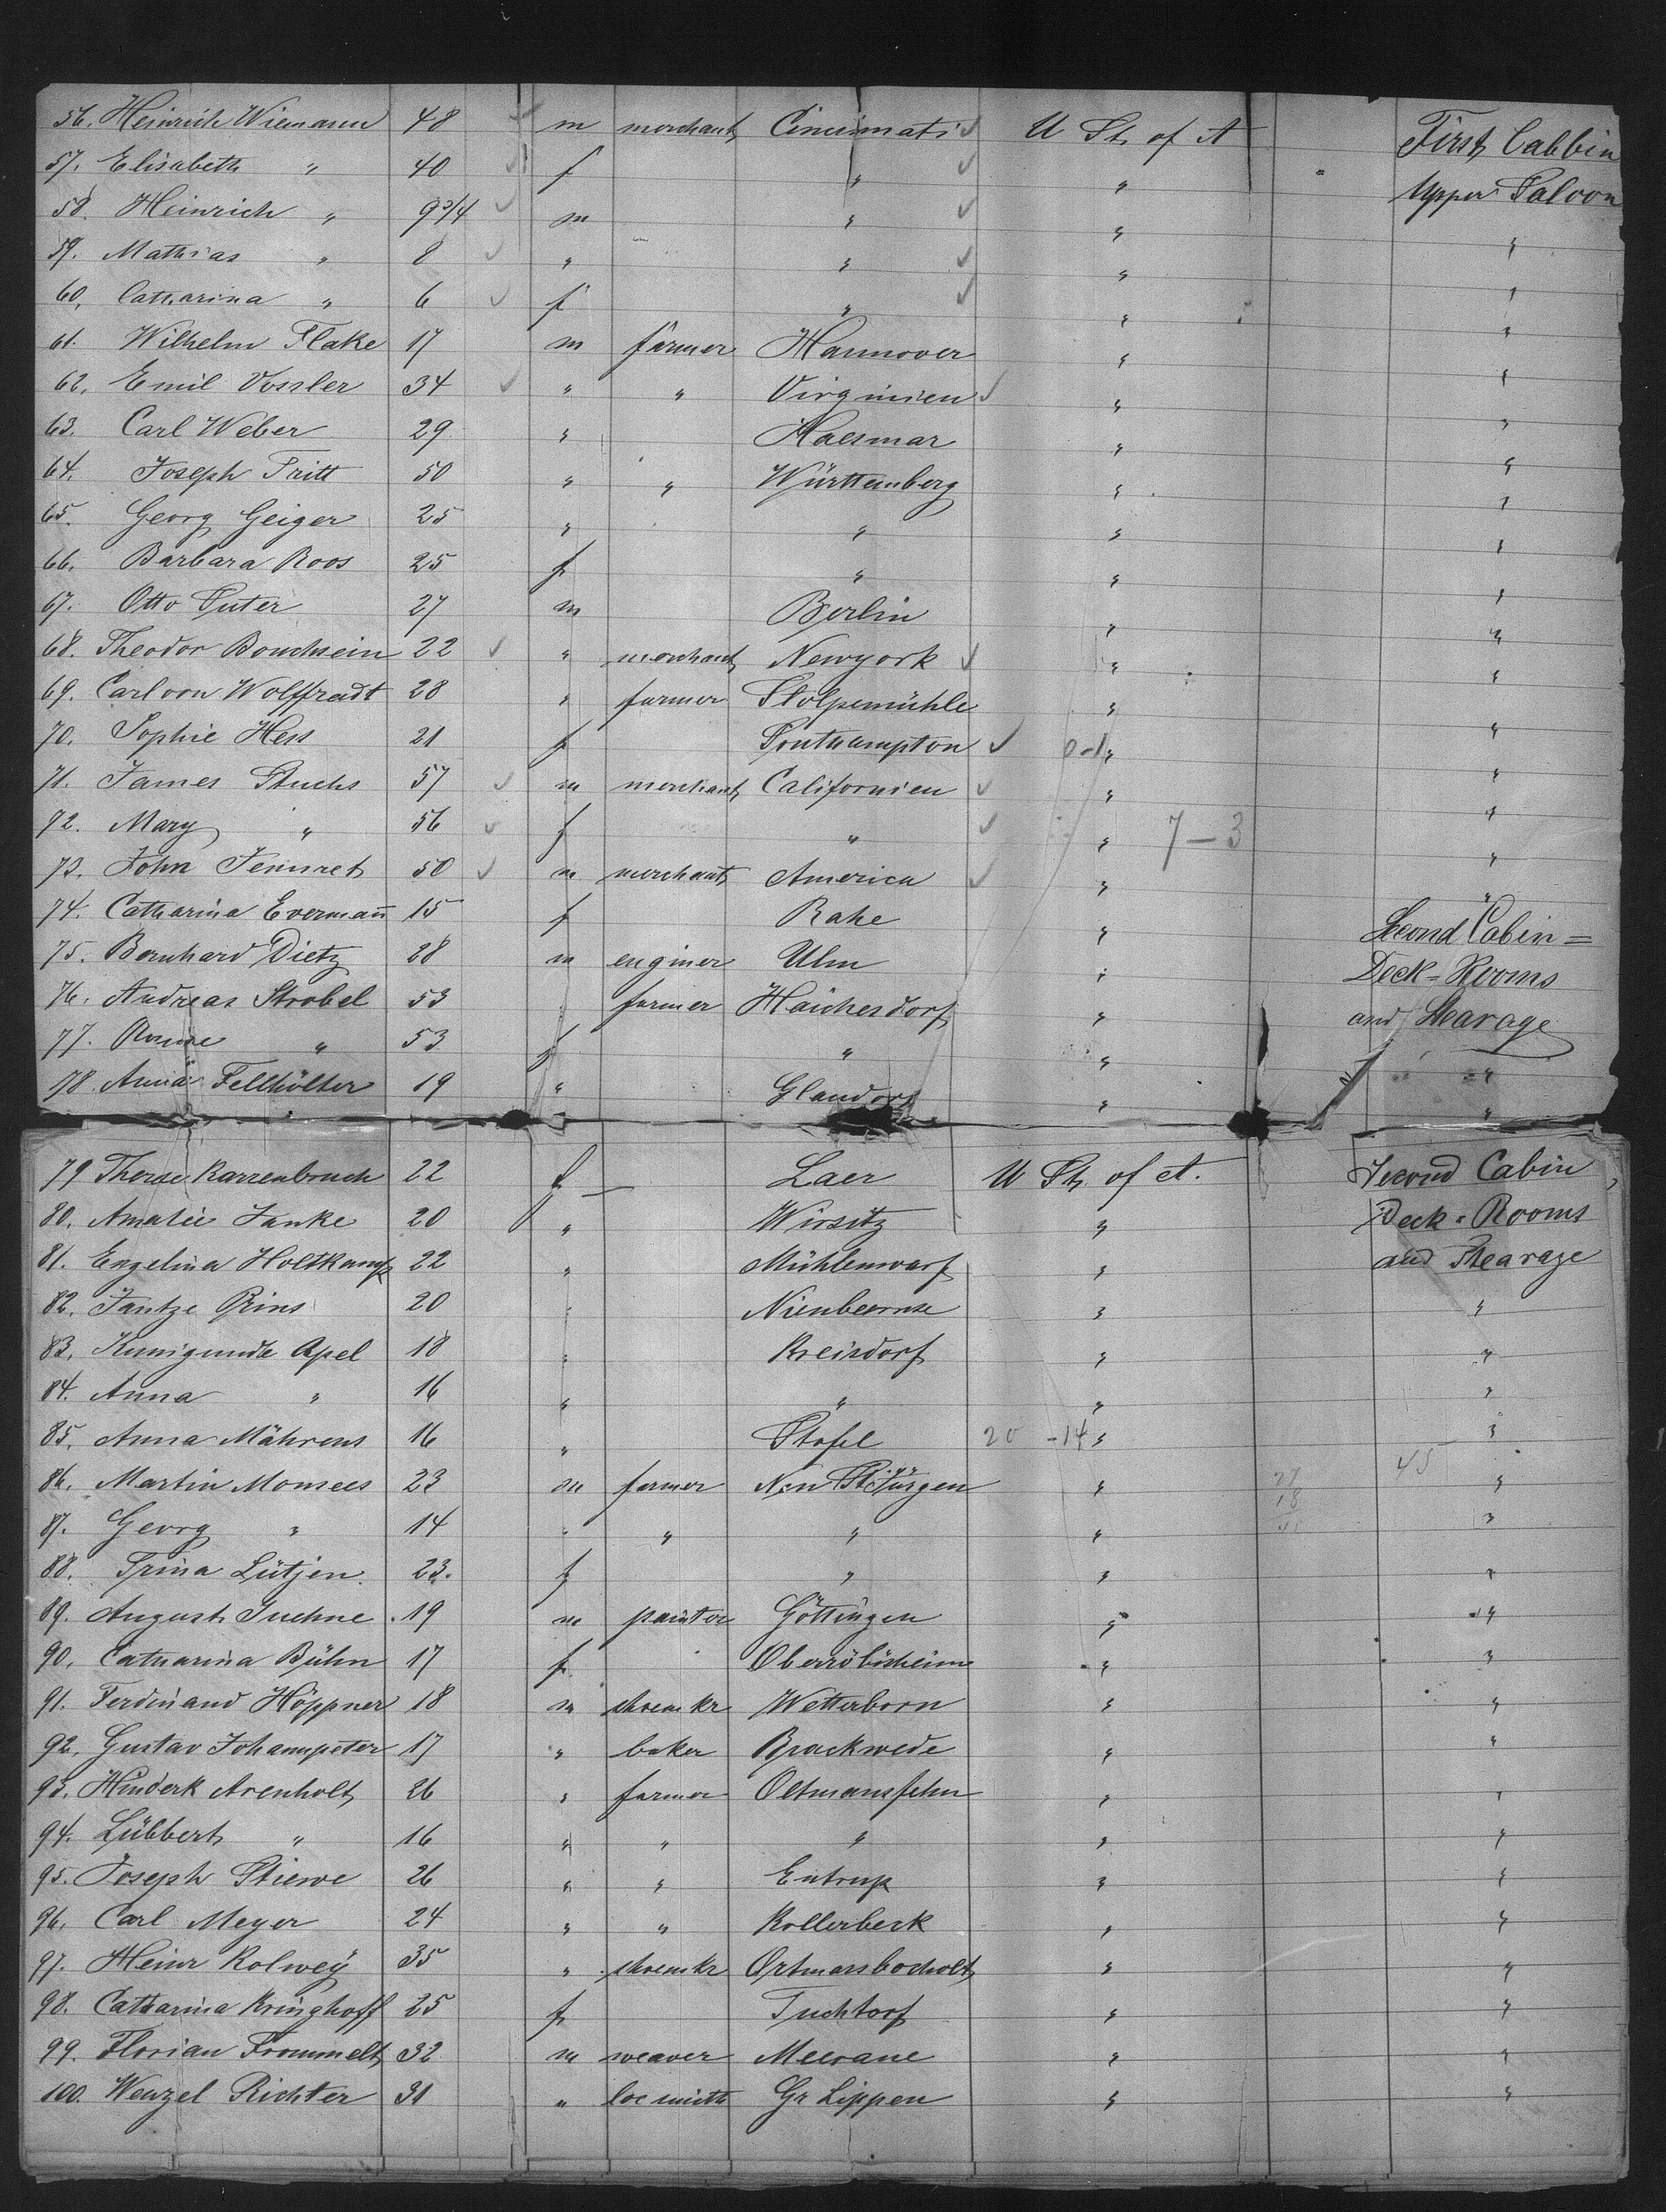 56. Heinrich Wiemann 48 m merchant Cincinnati U St. of A First Cabbin
57. Elisabeth " 40 f " " Upper Saloon
58. Heinrich " 9 3/4 m " " "
59. Mathias " 8 " " " "
60. Catharina " 6 f " " "
61. Wilhelm Flake 17 m farmer Hannover " "
62. Emil Vossler 34 " " Virginien " "
63. Carl Weber 29 " " "
64. Joseph Tritt 50 " " Württemberg " "
65. Georg Geiger 25 " " " "
66. Barbara Roos 25 f " " "
67. Otto Suter 27 m Berlin " "
68. Theodor 22 " merchant Newyork " "
69. Carl von Wolffradt 28 " farmer Stolpemühle " "
70. Sophie Hess 21 f Southampton 0-1 " "
71. James Stuchs 57 m merchant Californien " "
72. Mary " 56 f " " 7-3 "
73. John 50 m merchant America " "
74. Catharina Evermann 15 f Rahe " Second Cabin =
75. Bernhard Dietz 28 m enginer Ulm " Deck-Rooms
76. Andreas Strobel 53 farmer Haichesdorf " and Stearage
77. " 53 f " " "
78. Anna Fellhölter 19 " Glandorf " "
79 Therese Karrenbruch 22 f Laer U St. of A. Second Cabin
80. Amalie Janke 20 " Wirsitz " Deck-Rooms
81. Engelina Holtkamp 22 " Mühlenwarf " and Stearage
82. Jantze Prins 20 " " "
83. Kunigunde Apel 18 " Kreisdorf " "
84. Anna " 16 " " " "
85. Anna Mährens 16 " Stofel 20 -14 " "
86. Martin Monsees 23 m farmer St Jürgen " 27 45 "
87. Georg " 14 " " " " 18 "
88. Trina Lütjen 23. f " " "
89. August Tuehne 19 m painter Göttingen " "
90. Catharina Bühn 17 f " "
91. Ferdinand Höppner 18 m Wetterborn " "
92. Gustav Johannpeter 17 " baker Brackwede " "
93. Hinderk Arenholt 26 " farmer Oltmansfehn " "
94. Lübbert " 16 " " " " "
95. Joseph Stiewe 26 " " Entrup " "
96. Carl Meyer 24 " " Kollerbeck " "
97. Heinr Kolwey 35 " Ortmarsbocholt " "
98. Catharina Kringhoff 25 f Tuchtorf " "
99. Florian Frommelt 32 m weaver Meerane " "
100. Wenzel Richter 31 " locsmith Gr Lippen " "